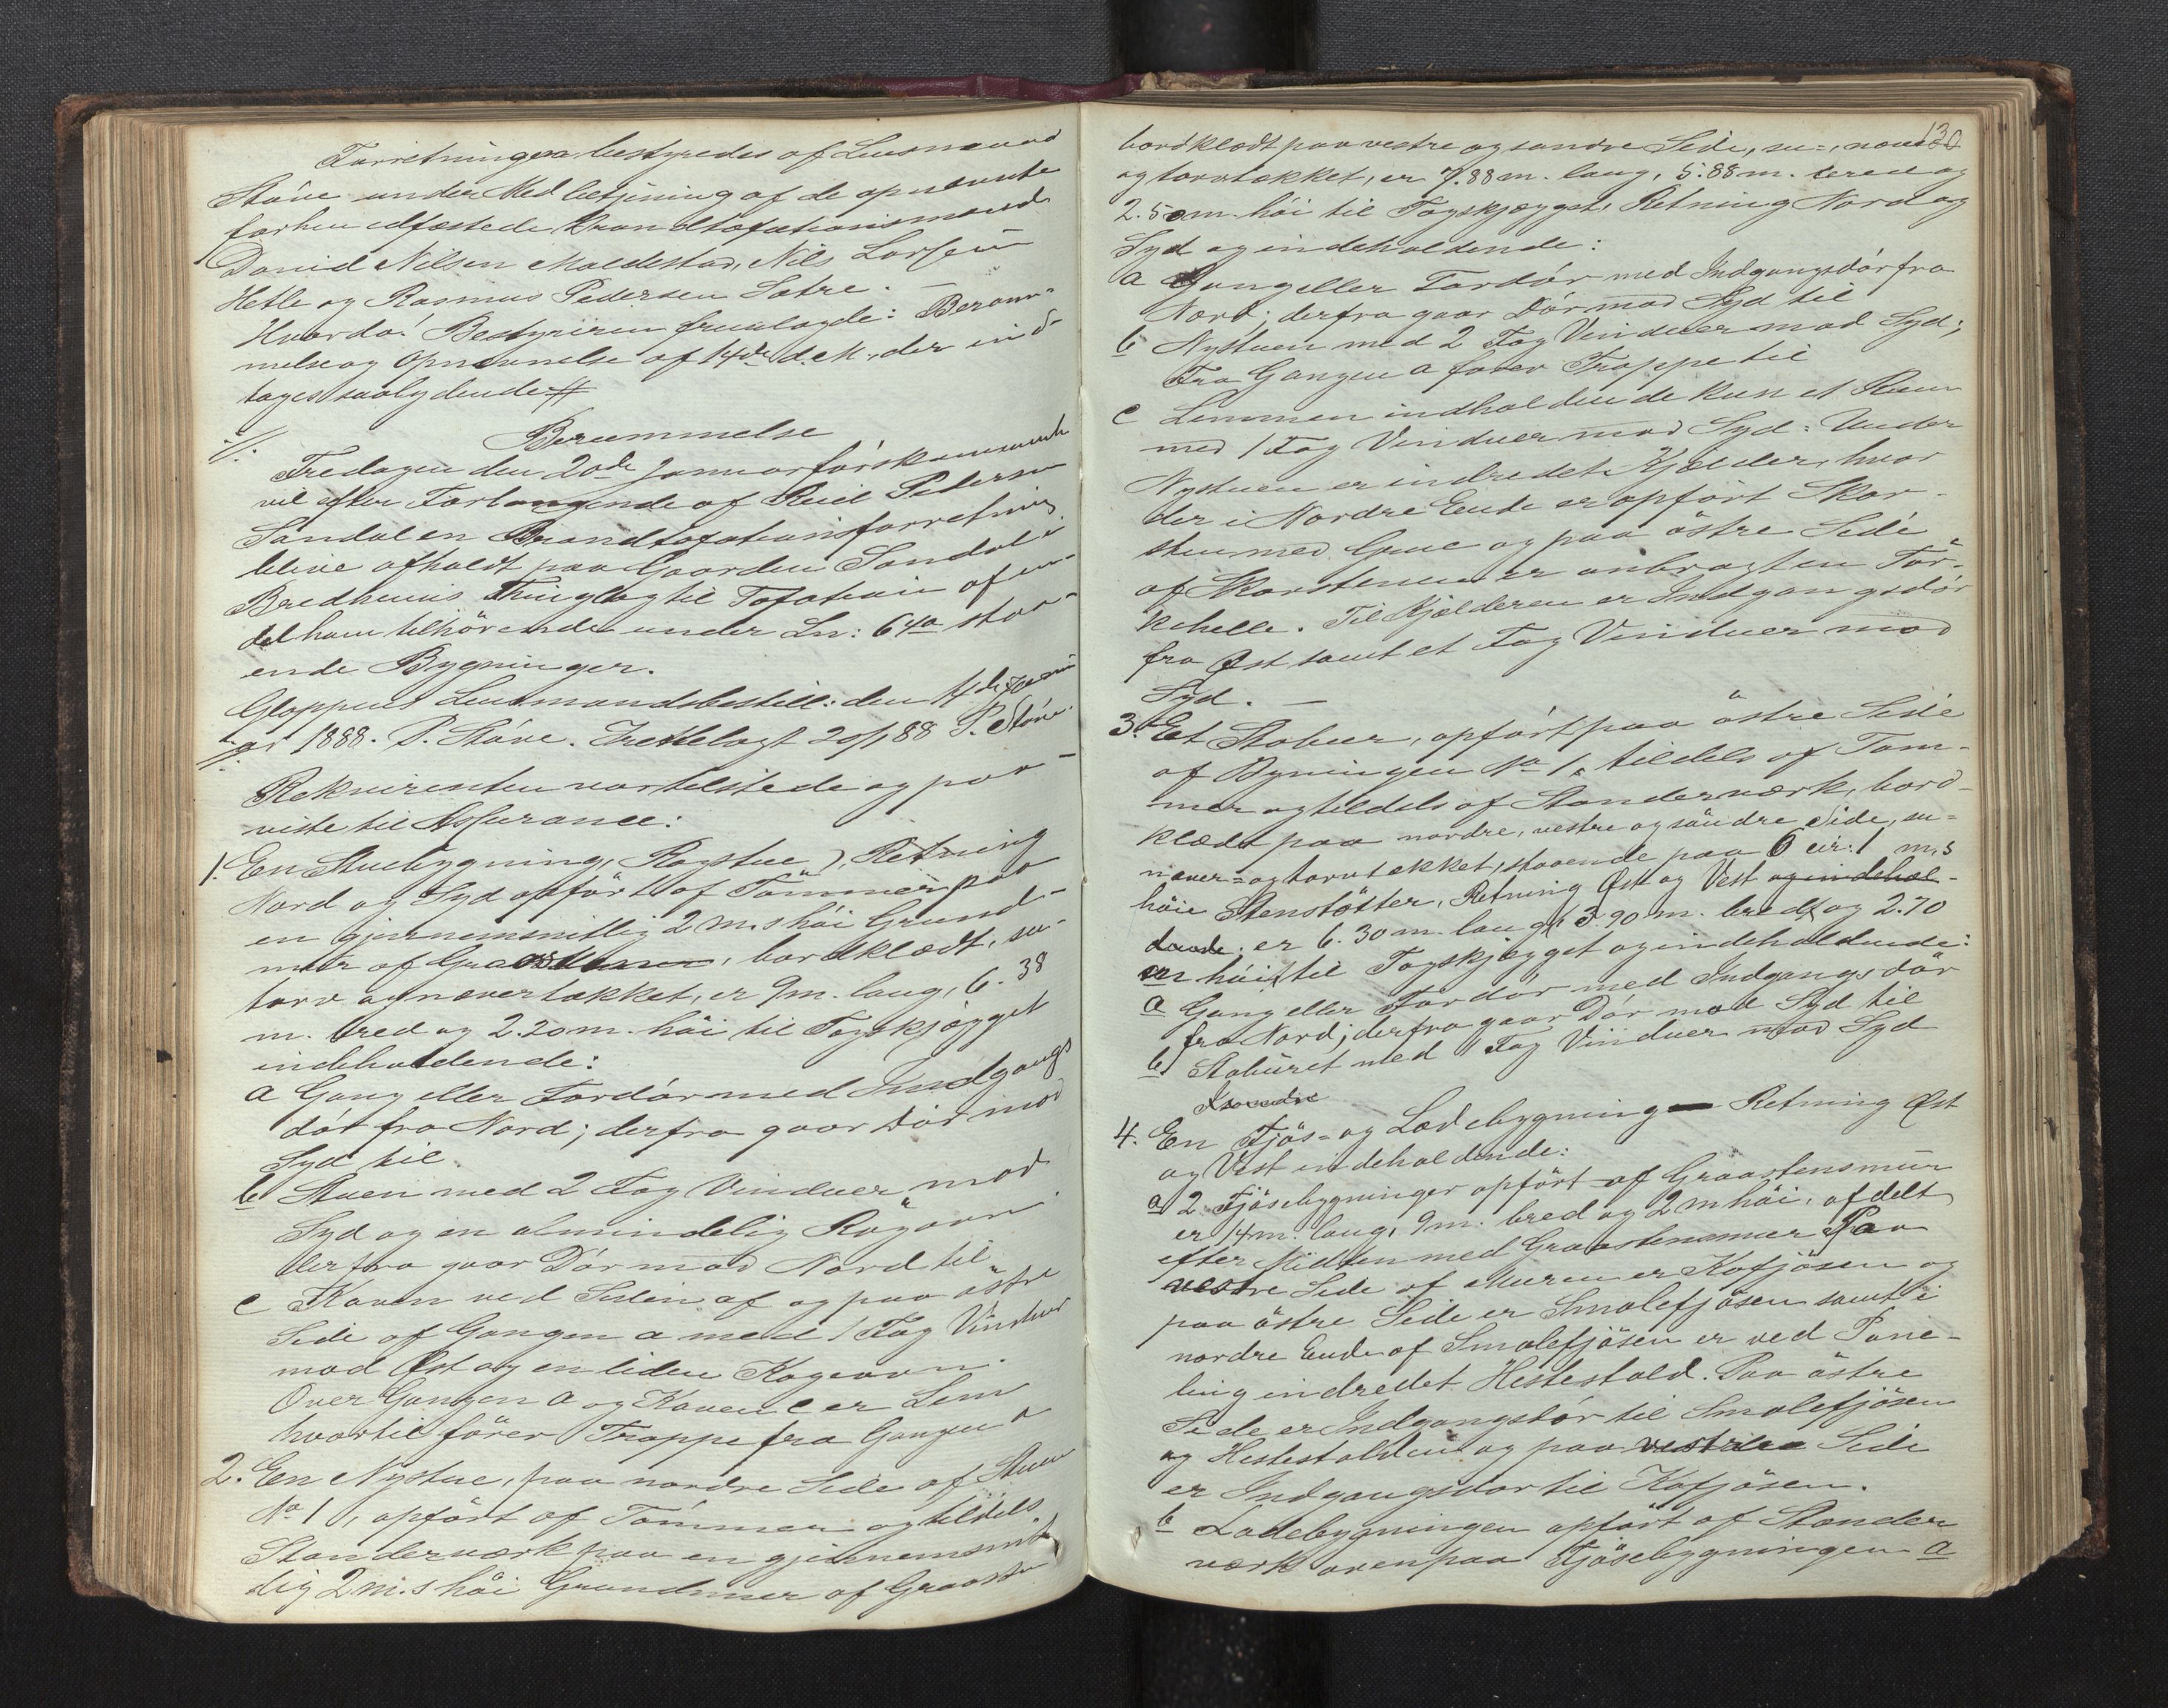 Forretningen bestyredes af Lensmand
Støve under Med betjening af de opnævnte
forhen edfæstede Brandtaxationsmænd
Daniel Nilsen Maldestad, Nils Larsen
Hetle og Rasmus Pedersen Sætre. —
Hvorda! Bestyreren fremlagde: Beram-
melse og Opnævnelse af 14de d.M., der ind-
tages saalydende #
·//· Berammelse
Fredagen den 20de Januar førstkommende
vil efter Forlangende af Pedersen
Sandal en Brandtaxationsforretning
blive afholdt paa Gaarden Sandal i
Bredheims Thinglag til Taxation af en
del ham tilhørende under Ln: 64a staa-
ende Bygninger.
Gloppens Lensmandsbestill: den 14de Janu
ar 1888. P. Støve. Fremlagt 20/1 88 P. Støve.
·//·
Rekvirenten var tilstede og paa-
viste til Assurance:
1. En Stuebygning, (Røgstue), Retning
Nord og Syd opført af Tømmer paa
en gjennemsnitlig 2 m.s høi Grund-
mur af Graasten, bordklædt, su-
torv og nævertækket, er 9 m. lang, 6.38
m. bred og 2.20 m. høi til Tagskjægget
indeholdende:
a Gang eller Fordør med Indgangs
dør fra Nord; derfra gaar Dør mod
Syd til
b Stuen med 2 Fag Vinduer mod
Syd og en almindelig Røgovn
derfra gaar Dør mod Nord til
c Koven ved Siden af og paa østre
Side af Gangen a med 1 Fag Vinduer
mod Øst og en liden Kogeovn.
Over Gangen a og Koven c er Lem
hvortil fører Trappe fra Gangen a
2. En Nystue, paa nordre Side af Stuen
No 1, opført af Tømmer og tildels
Standerværk paa en gjennemsnit
lig 2 m.s høi Grundmur af Graasten
130
bordklædt paa vestre og søndre Side, su-, næver
og torvtækket, er 7.88 m. lang, 5.88 m. bred og
2.50 m. høi til Tagskjægget, Retning Nord og
Syd og indeholdende:
a Gang eller Fordør med Indgangsdør fra
Nord; derfra gaar Dør mod Syd til
b Nystuen med 2 Fag Vinduer mod Syd;
Fra Gangen a fører Trappe til
c Lemmen indholdende kun et Rum
med 1 Fag Vinduer mod Syd: Under
Nystuen er indredet Kjælder, hvor
der i Nordre Ende er opført Skor-
sten med Grue og paa østre Side
af Skorstenen er anbragt en Tør-
kehelle. Til Kjælderen er Indgangsdør
fra Øst samt et Fag Vinduer mod
Syd. —
3. Et Stabur, opført paa østre Side
af Bygningen No 1, tildels af Tøm-
mer og tildels af Standerværk, bord-
klædt paa nordre, vestre og søndre Side, su-
næver- og torvtækket, staaende paa 6 cir: 1 m.s
høie Stenstøtter, Retning Øst og Vest og indehol-
dende. er 6.30 m. lang, 3.90 m. bred og 2.70
m høi til Tagskjægget og indeholdende:
a Gang eller Fordør med Indgangsdør
fra Nord; derfra gaar Dør mod Syd til
b Staburet med 1 Fag Vinduer mod Syd
4. En Fjøs- og Ladebygning — Retning Øst
og Vest indeholdende:
a 2 Fjøsebygninger opført af Graastensmur
er 14 m. lang, 9 m. bred og 2 m høi, afdelt
efter Midten med Graastensmur Paa
vestre Side af Muren er Kofjøsen og
paa østre Side er Smalefjøsen samt i
nordre Ende af Smalefjøsen er ved Pane-
ling indredet Hestestald. Paa østre
Side er Indgangsdør til Smalefjøsen
og Hestestalden og paa vestre Side
er Indgangsdør til Kofjøsen.
b Ladebygningen opført af Stander
værk ovenpaa Fjøsebygningen a